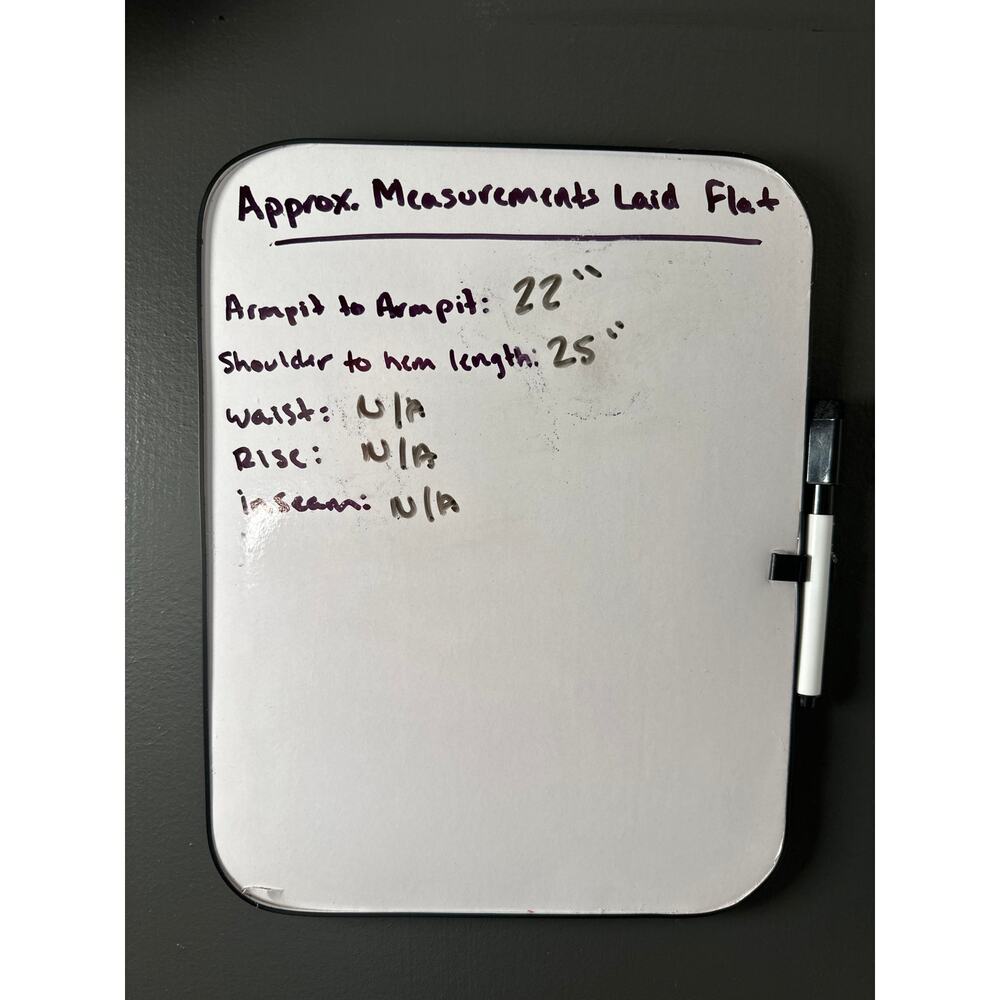 Approx. Measurements Laid Flat
Armpit to Armpit: 22"
Shoulder to hem length: 25"
Waist: N/A
Rise: N/A
inseam: N/A